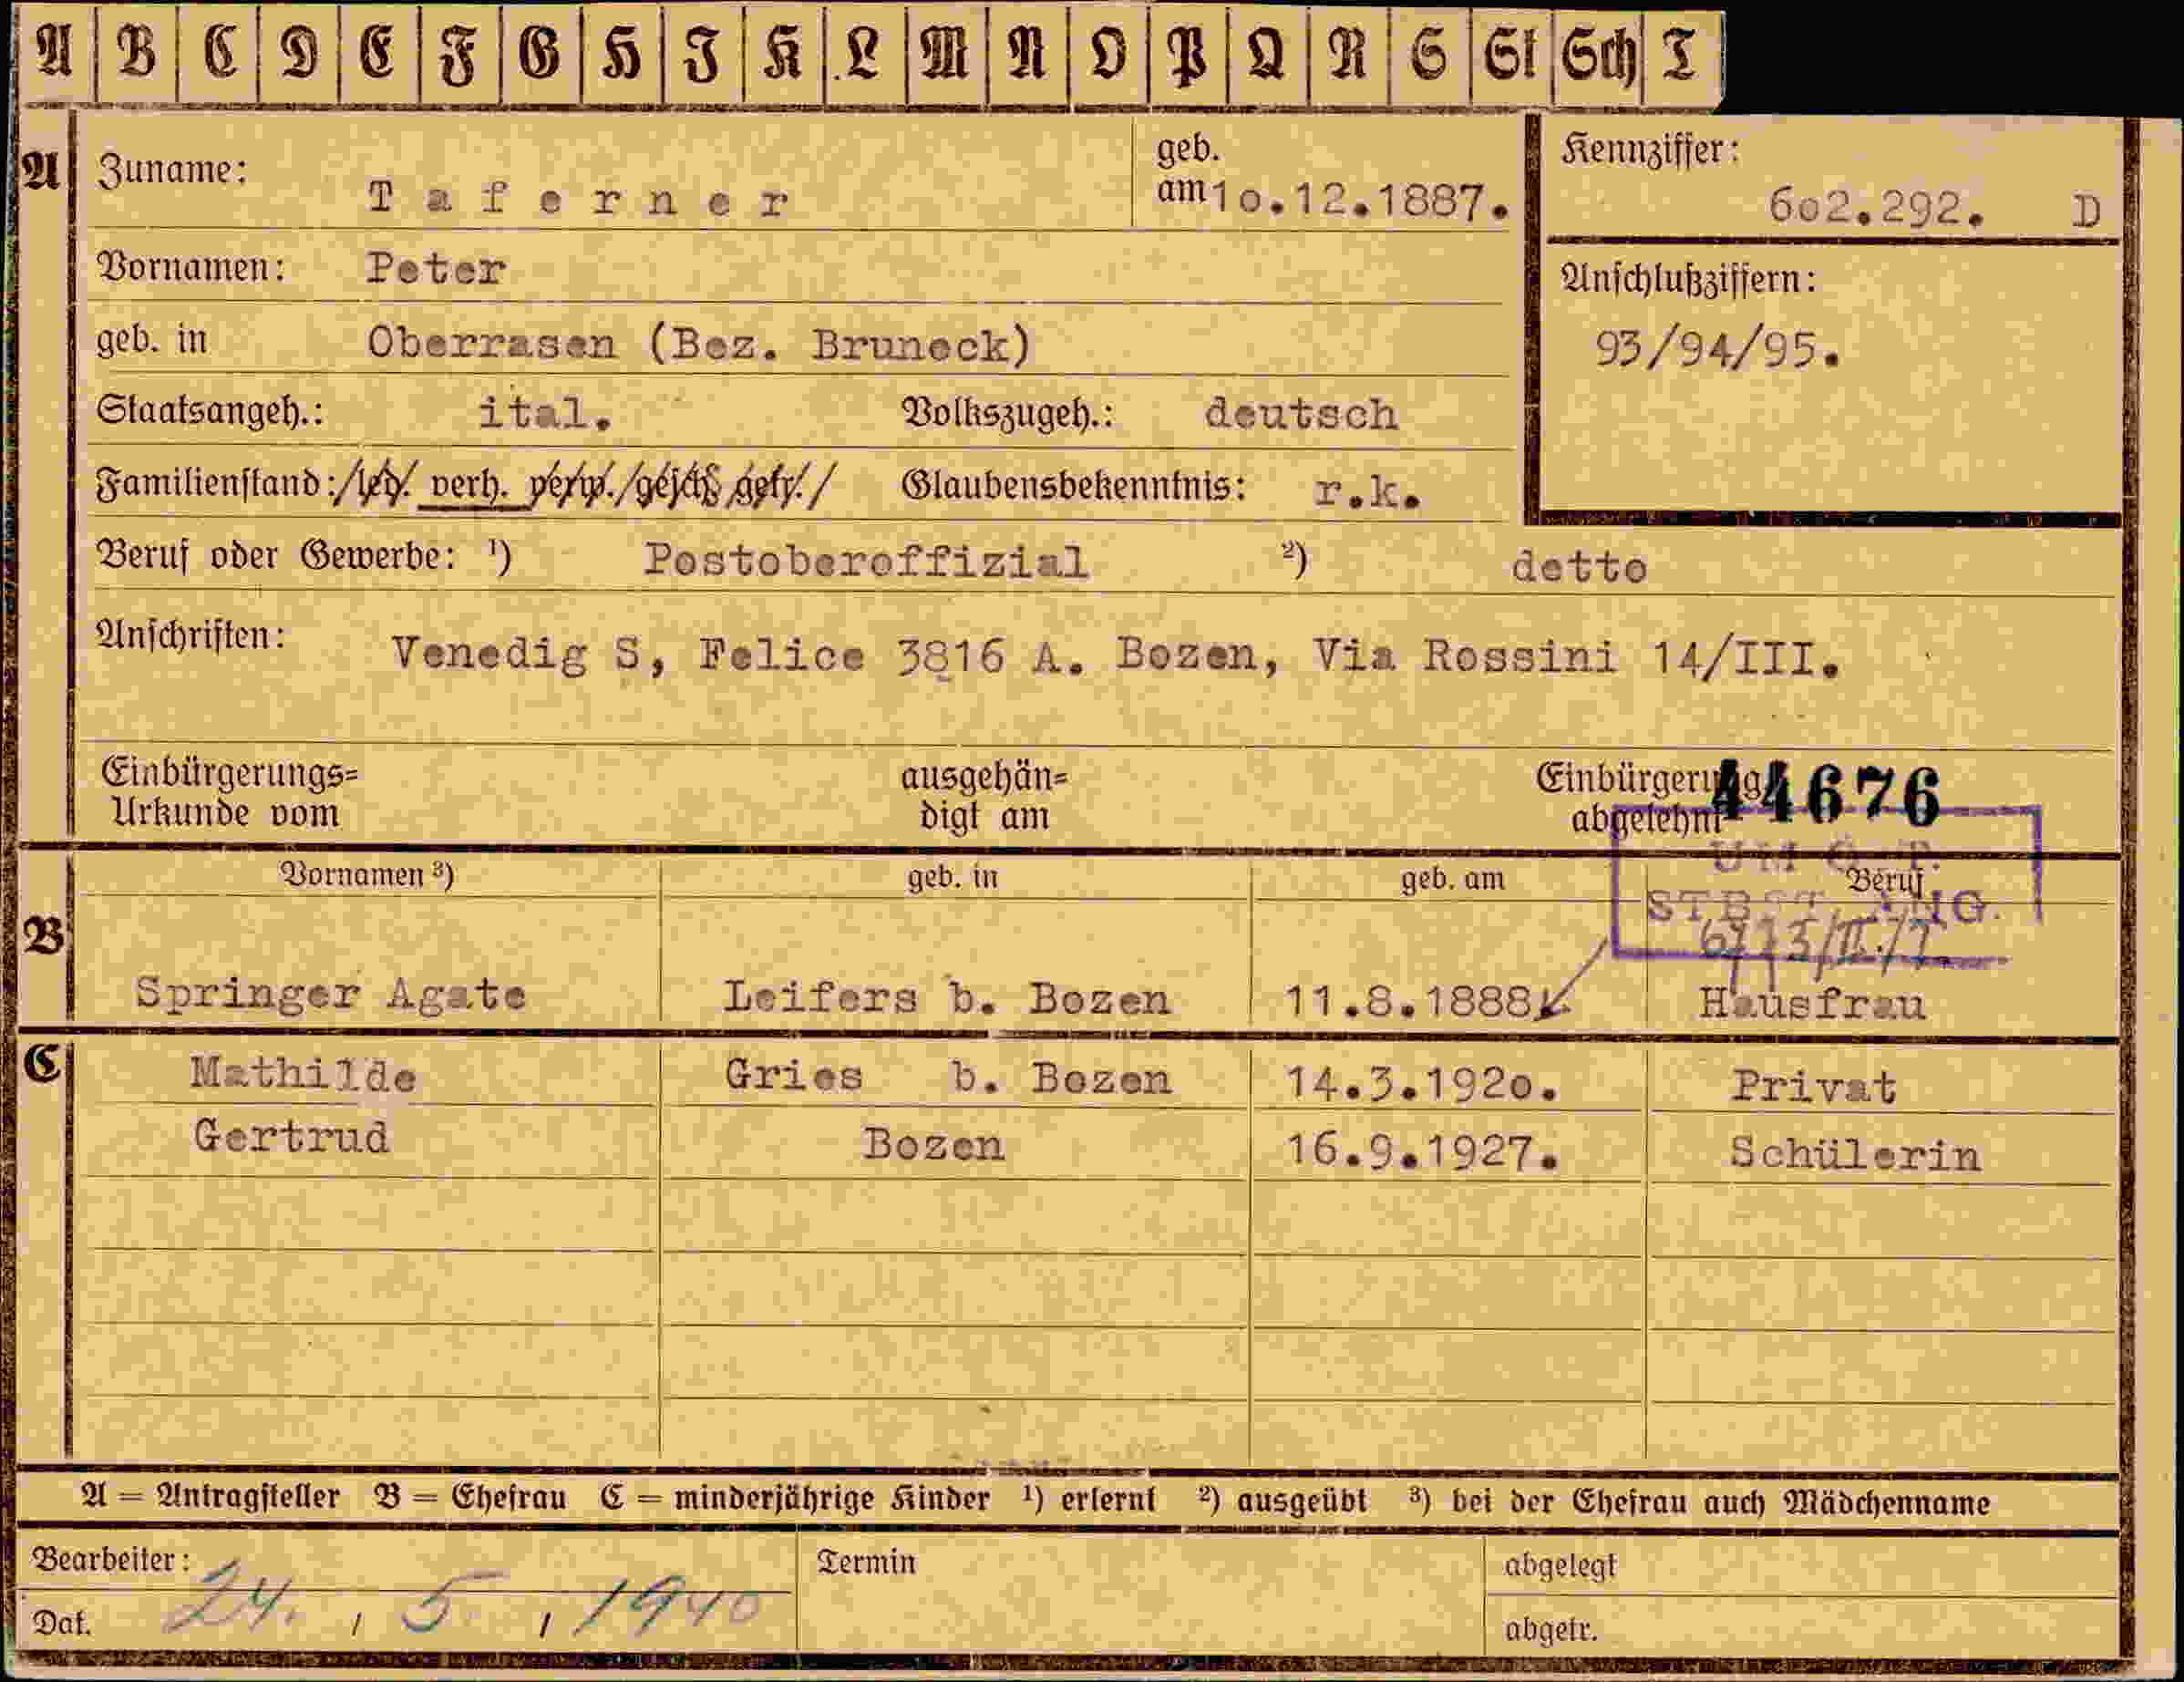 A B C D E F G H I K L M N O P Q R S St Sch T
A Zuname: Taferner geb. am 10.12.1887. Kennziffer: 602.292. D
Vornamen: Peter Anschlußziffern:
geb. in Oberrasen (Bez. Bruneck) 93/94/95.
Staatsangeh.: ital. Volkszugeh.: deutsch
Familienstand: led. verh. verw. gesch. getr. Glaubensbekenntnis: r.k.
Beruf oder Gewerbe: ¹) Postoberoffizial ²) detto
Anschriften: Venedig S, Felice 3816 A. Bozen, Via Rossini 14/III.
Einbürgerungs= ausgehän= Einbürgerung 44676
Urkunde vom digt am abgelehnt
B Vornamen ³) geb. in geb. am Beruf
Springer Agate Leifers b. Bozen 11.8.1888 Hausfrau
C Mathilde Gries b. Bozen 14.3.1920. Privat
Gertrud Bozen 16.9.1927. Schülerin
A = Antragsteller B = Ehefrau C = minderjährige Kinder ¹) erlernt ²) ausgeübt ³) bei der Ehefrau auch Mädchenname
Bearbeiter: Termin abgelegt
Dat. 24. / 5 / 1940 abgetr.